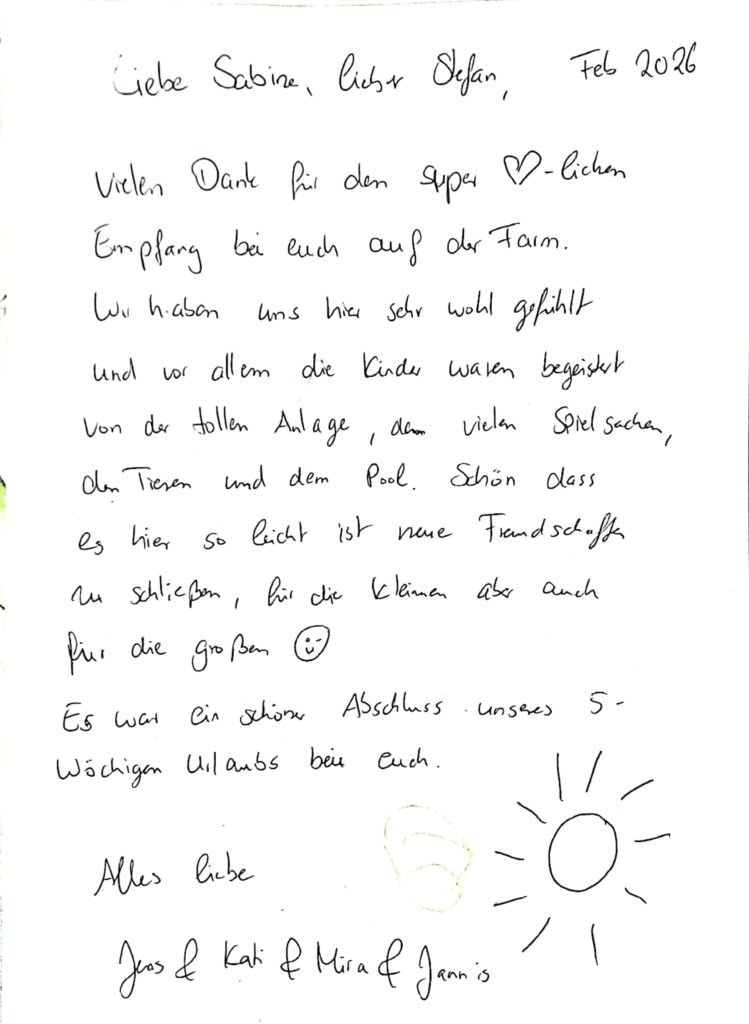 Liebe Sabine, lieber Stefan, Feb 2026
Vielen Dank für den super ♡-lichen
Empfang bei euch auf der Farm.
Wir haben uns hier sehr wohl gefühlt
und vor allem die Kinder waren begeistert
von der tollen Anlage, den vielen Spielsachen,
den Tieren und dem Pool. Schön dass
es hier so leicht ist neue Freundschaften
zu schließen, für die kleinen aber auch
für die großen ☺
Es war ein schöner Abschluss unseres 5-
Wöchigen Urlaubs bei euch.
Alles liebe
Jens & Kati & Mira & Jannis